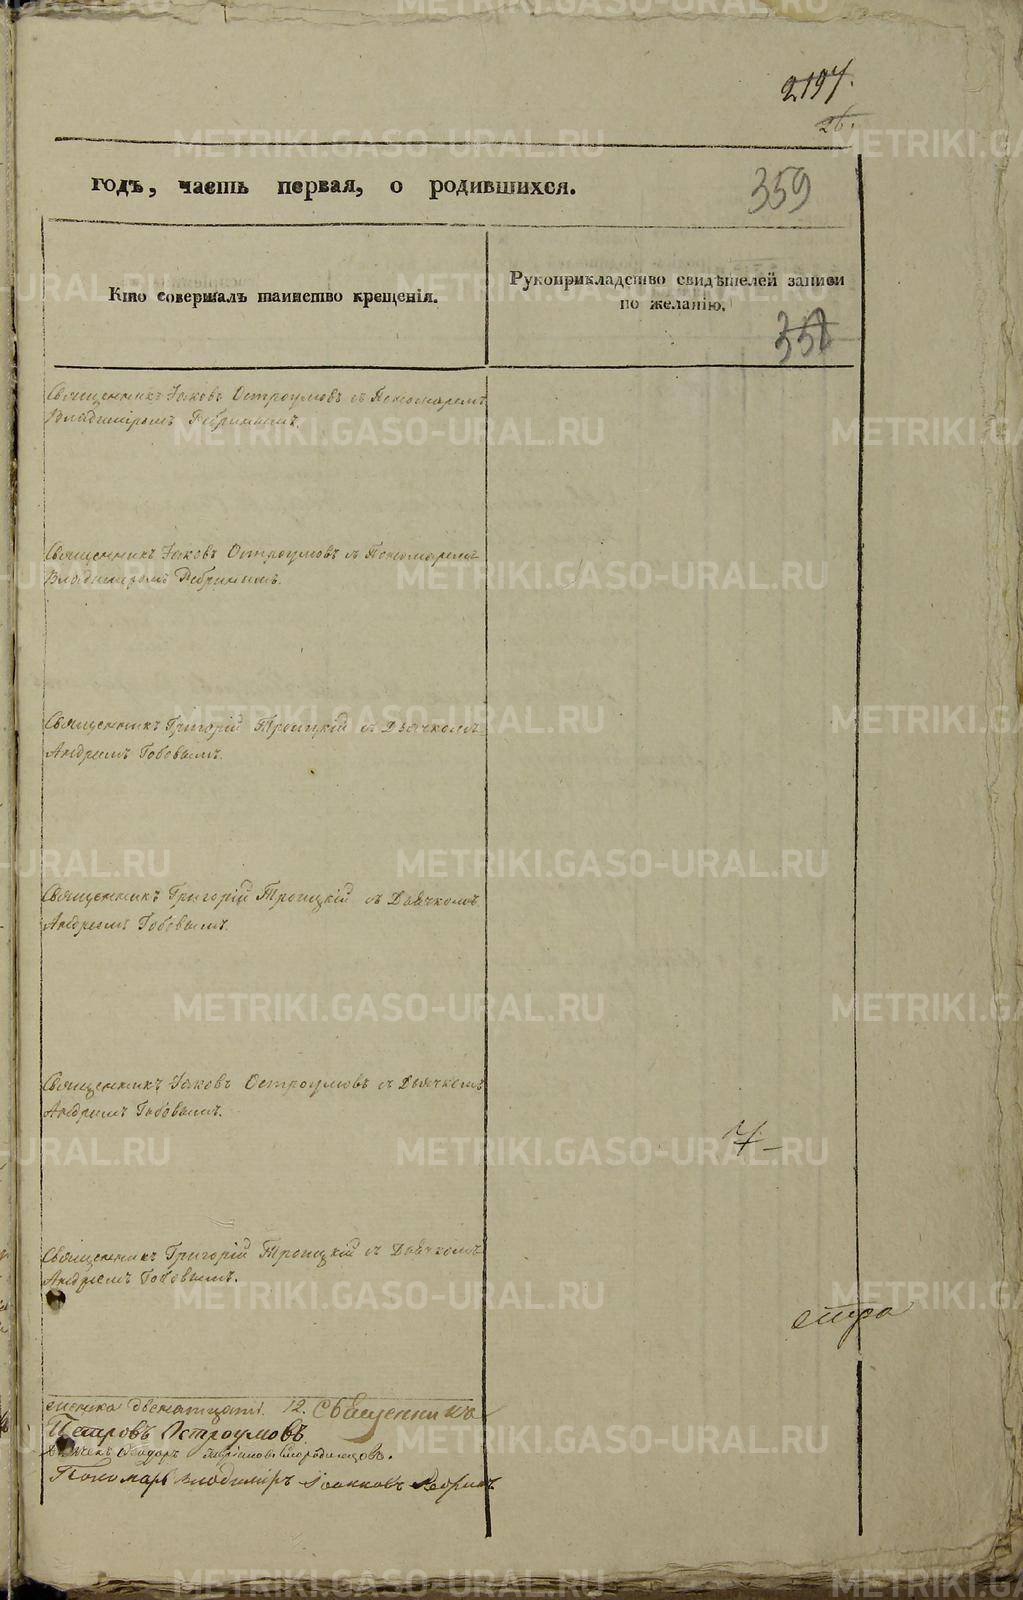 2197.
26.
годъ, часть первая, о родившихся.
359
Кто совершалъ таинство крещенія.
Рукоприкладство свидѣтелей записи
по желанію.
358
Священникъ Іаковъ Остроумовъ съ Пономаремъ
Владиміромъ Ребринымъ.
Священникъ Іаковъ Остроумовъ съ Пономаремъ
Владиміромъ Ребринымъ.
Священникъ Григорій Троицкій съ Дьячкомъ
Андреемъ Гобовымъ.
Священникъ Григорій Троицкій съ Дьячкомъ
Андреемъ Гобовымъ.
Священникъ Іаковъ Остроумовъ съ Дьячкомъ
Андреемъ Гобовымъ.
Священникъ Григорій Троицкій съ Дьячкомъ
Андреемъ Гобовымъ.
женска двенатцать. 12. Священникъ
Петровъ Остроумовъ
Дьячекъ Ѳеодоръ
Пономарь Владиміръ Іоанновъ Ребринъ
METRIKI.GASO-URAL.RU